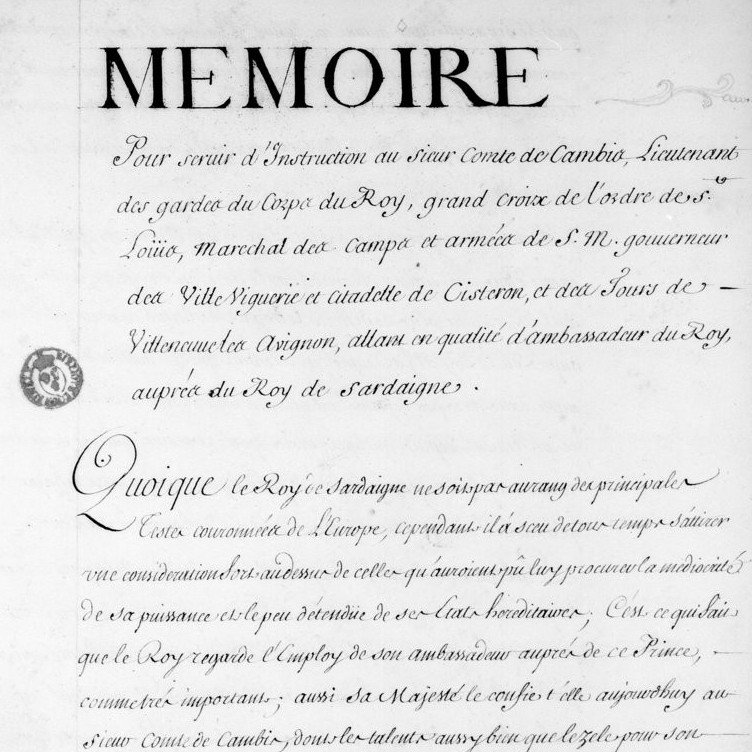 MEMOIRE
Pour seruir d'Instruction au sieur Comte de Cambis, Lieutenant
des gardes du Corps du Roy, grand croix de l'ordre de S.^t
Loüis, Marechal des Camps et armées de S. M. gouuerneur
des Ville Viguerie et citadelle de Cisteron, et des Tours de
Villeneuue les Avignon, allant en qualité d'ambassadeur du Roy,
auprés du Roy de Sardaigne.
Quoique le Roy de Sardaigne ne soit pas au rang des principales
Testes couronnées de L'Europe, cependant il à sceu de tous temps s'attirer
vne consideration fort au dessus de celles qu'auroient pû luy procurer la mediocrité
de sa puissance et le peu d'étendüe de ses Etats hereditaires; C'est ce qui fait
que le Roy regarde l'Employ de son ambassadeur auprés de ce Prince,
comme trés important; aussi sa Majesté le confie t'elle aujourd'huy au
sieur Comte de Cambis, dont les talents aussy bien que le zele pour son